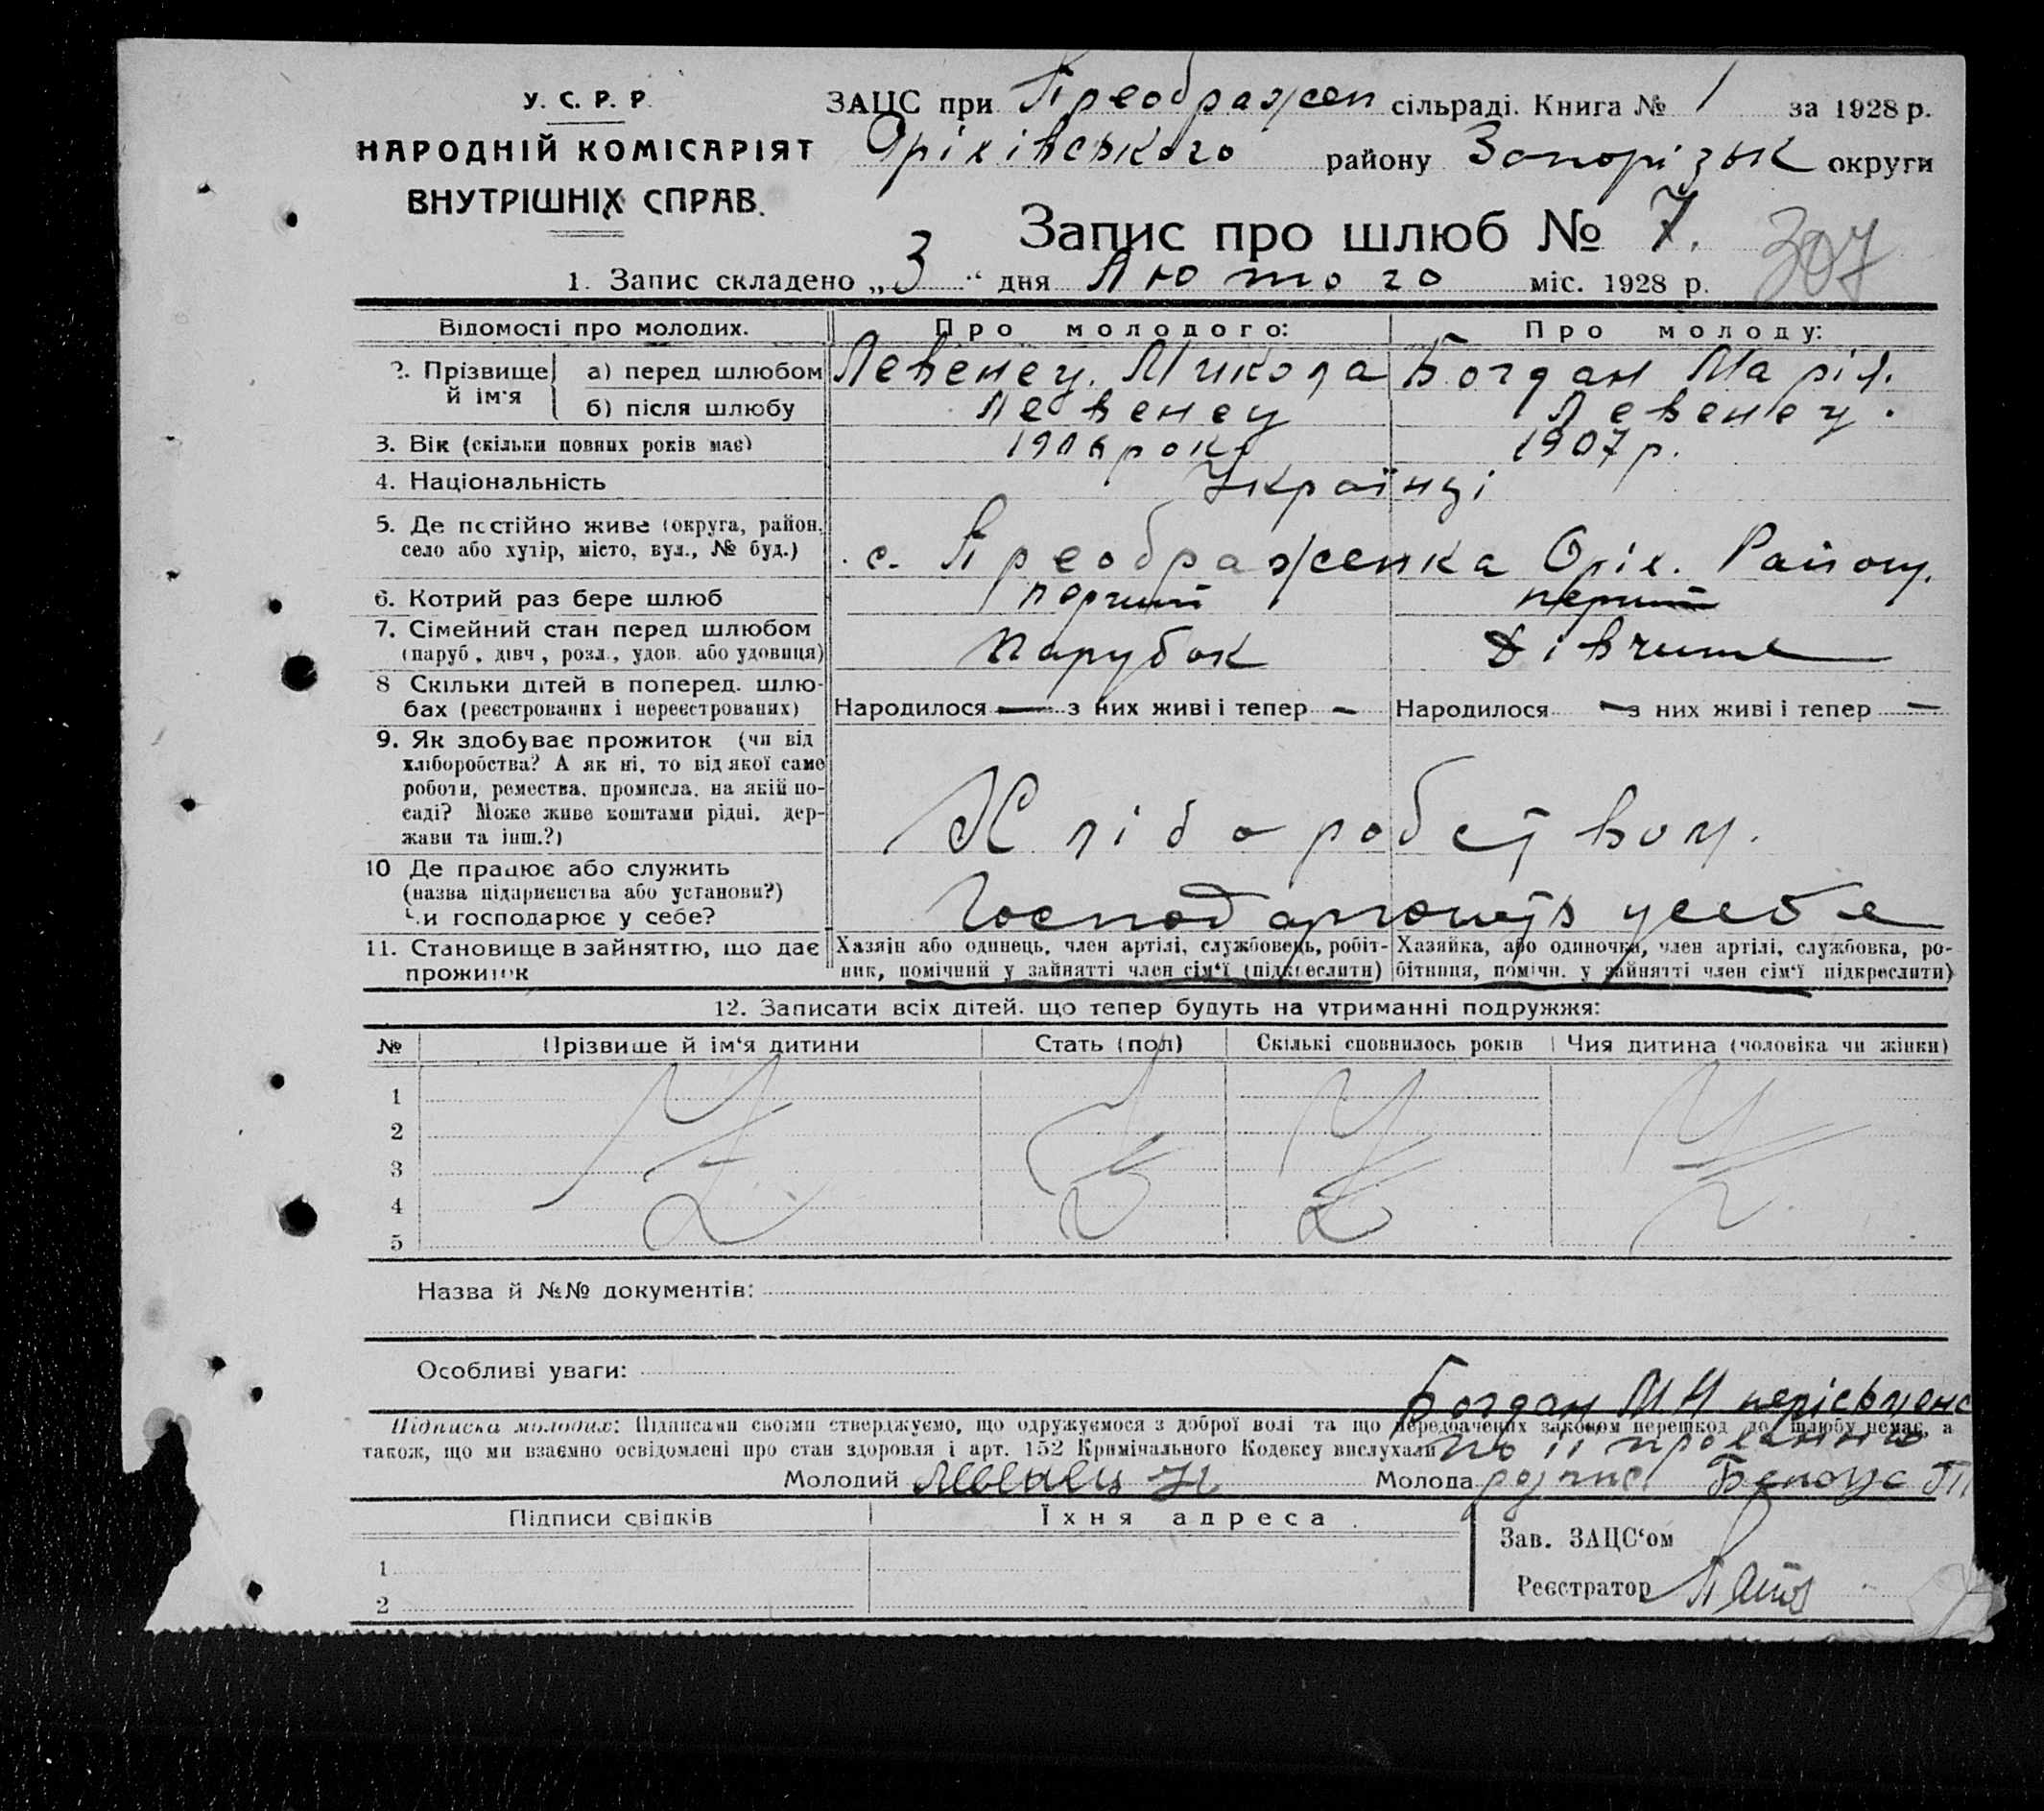 У. С. Р. Р.
НАРОДНІЙ КОМІСАРІЯТ
ВНУТРІШНІХ СПРАВ.
ЗАЦС при Преображен сільраді. Книга № 1 за 1928 р.
Оріхівського району Запорізьк округи
Запис про шлюб № 7.
307
1. Запис складено „3“ дня Лютого міс. 1928 р.
Відомості про молодих. Про молодого: Про молоду:
2. Прізвище й ім'я а) перед шлюбом Левенец. Микола Богдан Марія.
б) після шлюбу Левенец Левенец.
3. Вік (скільки повних років має) 1906 рок. 1907 р.
4. Національність Українці
5. Де постійно живе (округа, район, село або хутір, місто, вул., № буд.) с. Преображенка Оріх. Району.
6. Котрий раз бере шлюб перший перший
7. Сімейний стан перед шлюбом (паруб., дівч., розл., удов. або удовиця) Парубок Дівчина
8 Скільки дітей в поперед. шлюбах (реєстрованих і нереєстрованих) Народилося — з них живі і тепер — Народилося — з них живі і тепер —
9. Як здобуває прожиток (чи від хліборобства? А як ні, то від якої саме роботи, ремества, промисла, на якій посаді? Може живе коштами рідні, держави та інш.?) Хліборобством.
10 Де працює або служить (назва підприємства або установи?) Чи господарює у себе? Господарюють у себе
11. Становище в зайняттю, що дає прожиток Хазяїн або одинець, член артілі, службовець, робітник, помічний у зайнятті член сім'ї (підкреслити) Хазяйка, або одиночка, член артілі, службовка, робітниця, помічн. у зайнятті член сім'ї підкреслити)
12. Записати всіх дітей, що тепер будуть на утриманні подружжя:
№ Прізвище й ім'я дитини Стать (пол) Скількі сповнилось років Чия дитина (чоловіка чи жінки)
1
2
3
4
5
Назва й №№ документів:
Особливі уваги:
Богдан М И
Підписка молодих: Підписами своїми стверджуємо, що одружуємося з доброї волі та що передбачених законом перешкод до шлюбу немає, а
також, що ми взаємно освідомлені про стан здоровля і арт. 152 Кримічального Кодексу вислухали
по її проханню
Молодий Левенец Н Молода розписав Белоус П
Підписи свідків Їхня адреса
Зав. ЗАЦС'ом
1
Реєстратор
2